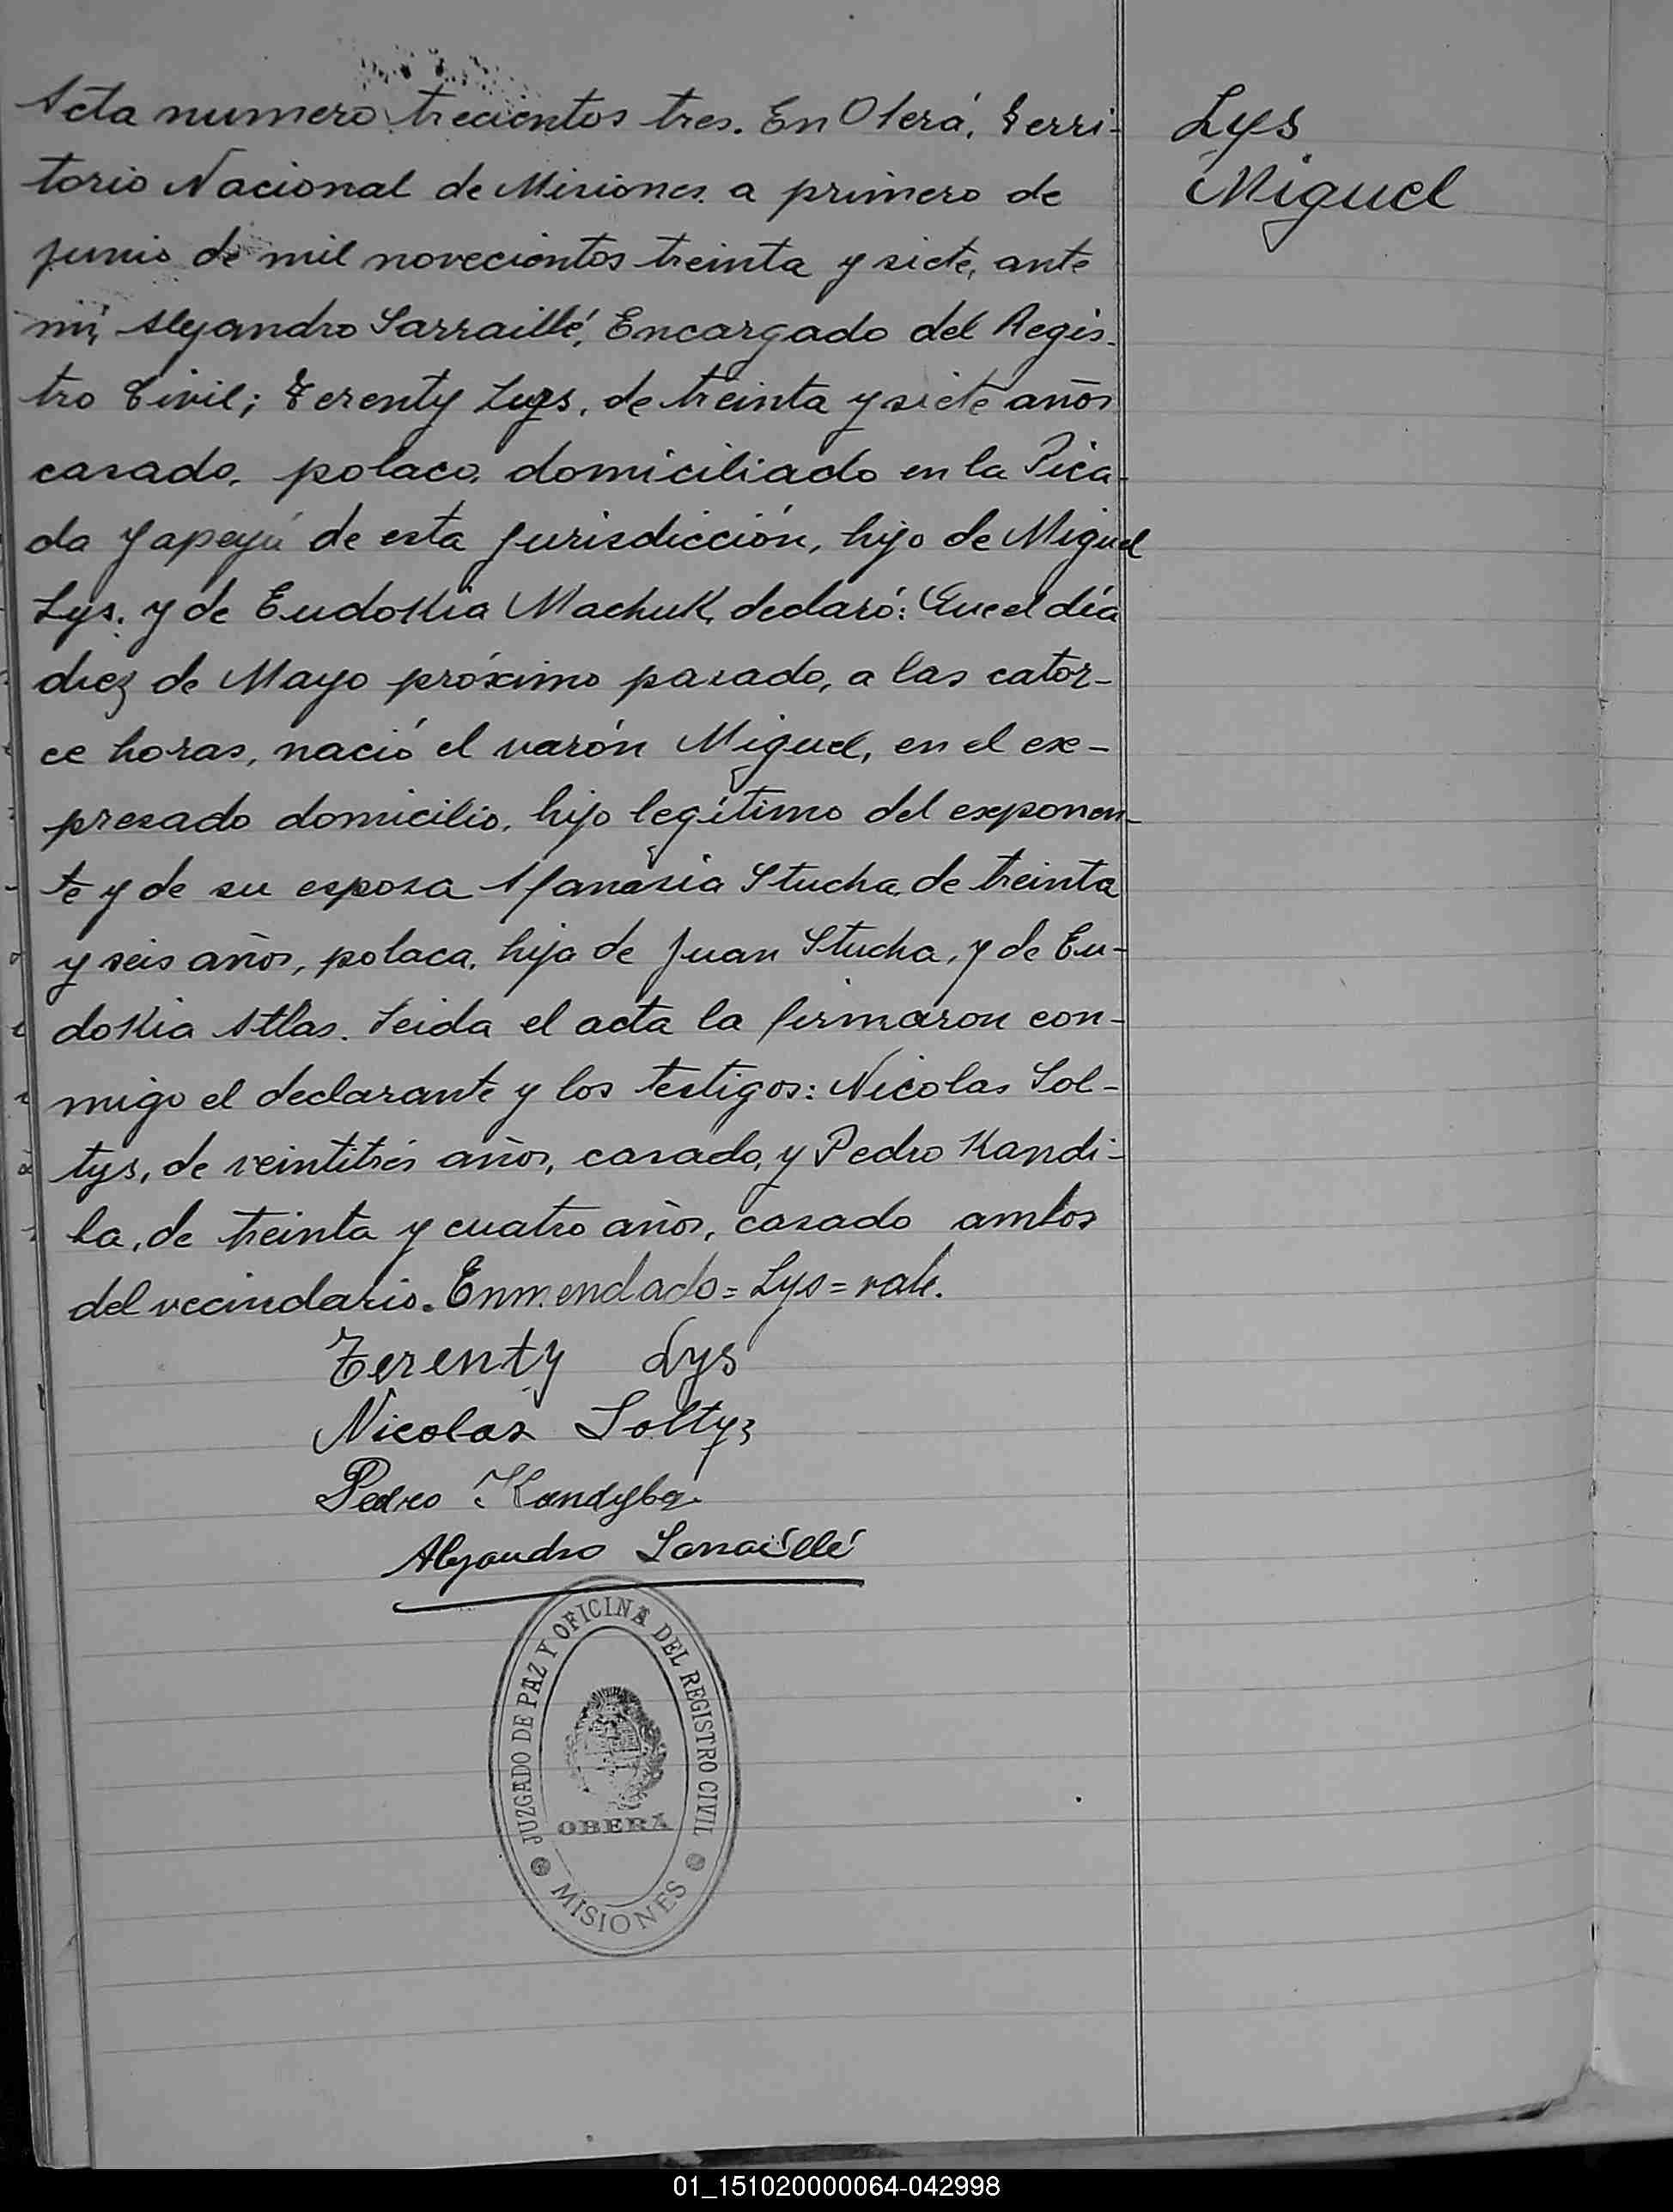 Acta numero trecientos tres. En Oberá, Terri-
torio Nacional de Misiones a primero de
junio de mil novecientos treinta y siete, ante
mi, Alejandro Sarraillé, Encargado del Regis-
tro Civil; Terenty Lys, de treinta y siete años
casado, polaco, domiciliado en la Pica-
da Yapeyú de esta jurisdicción, hijo de Miguel
Lys. y de Eudokia Machuk, declaró: Que el día
diez de Mayo próximo pasado, a las cator-
ce horas, nació el varón Miguel, en el ex-
presado domicilio, hijo legítimo del exponen-
te y de su esposa Afanasia Stucha, de treinta
y seis años, polaca, hija de Juan Stucha, y de Eu-
dokia Atlas. Leida el acta la firmaron con-
migo el declarante y los testigos: Nicolas Sol-
tys, de veintitrés años, casado, y Pedro Kandi-
ba, de treinta y cuatro años, casado ambos
del vecindario. Enmendado = Lys = vale.
Terenty Lys
Nicolas Soltys
Pedro Kandyba
Alejandro Sarraillé
JUZGADO DE PAZ Y OFICINA DEL REGISTRO CIVIL
OBERA
MISIONES
Lys
Miguel
01_151020000064-042998